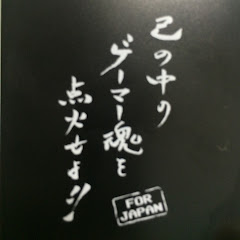 己の中の
ゲーマー魂を
点火せよ!!
FOR
JAPAN